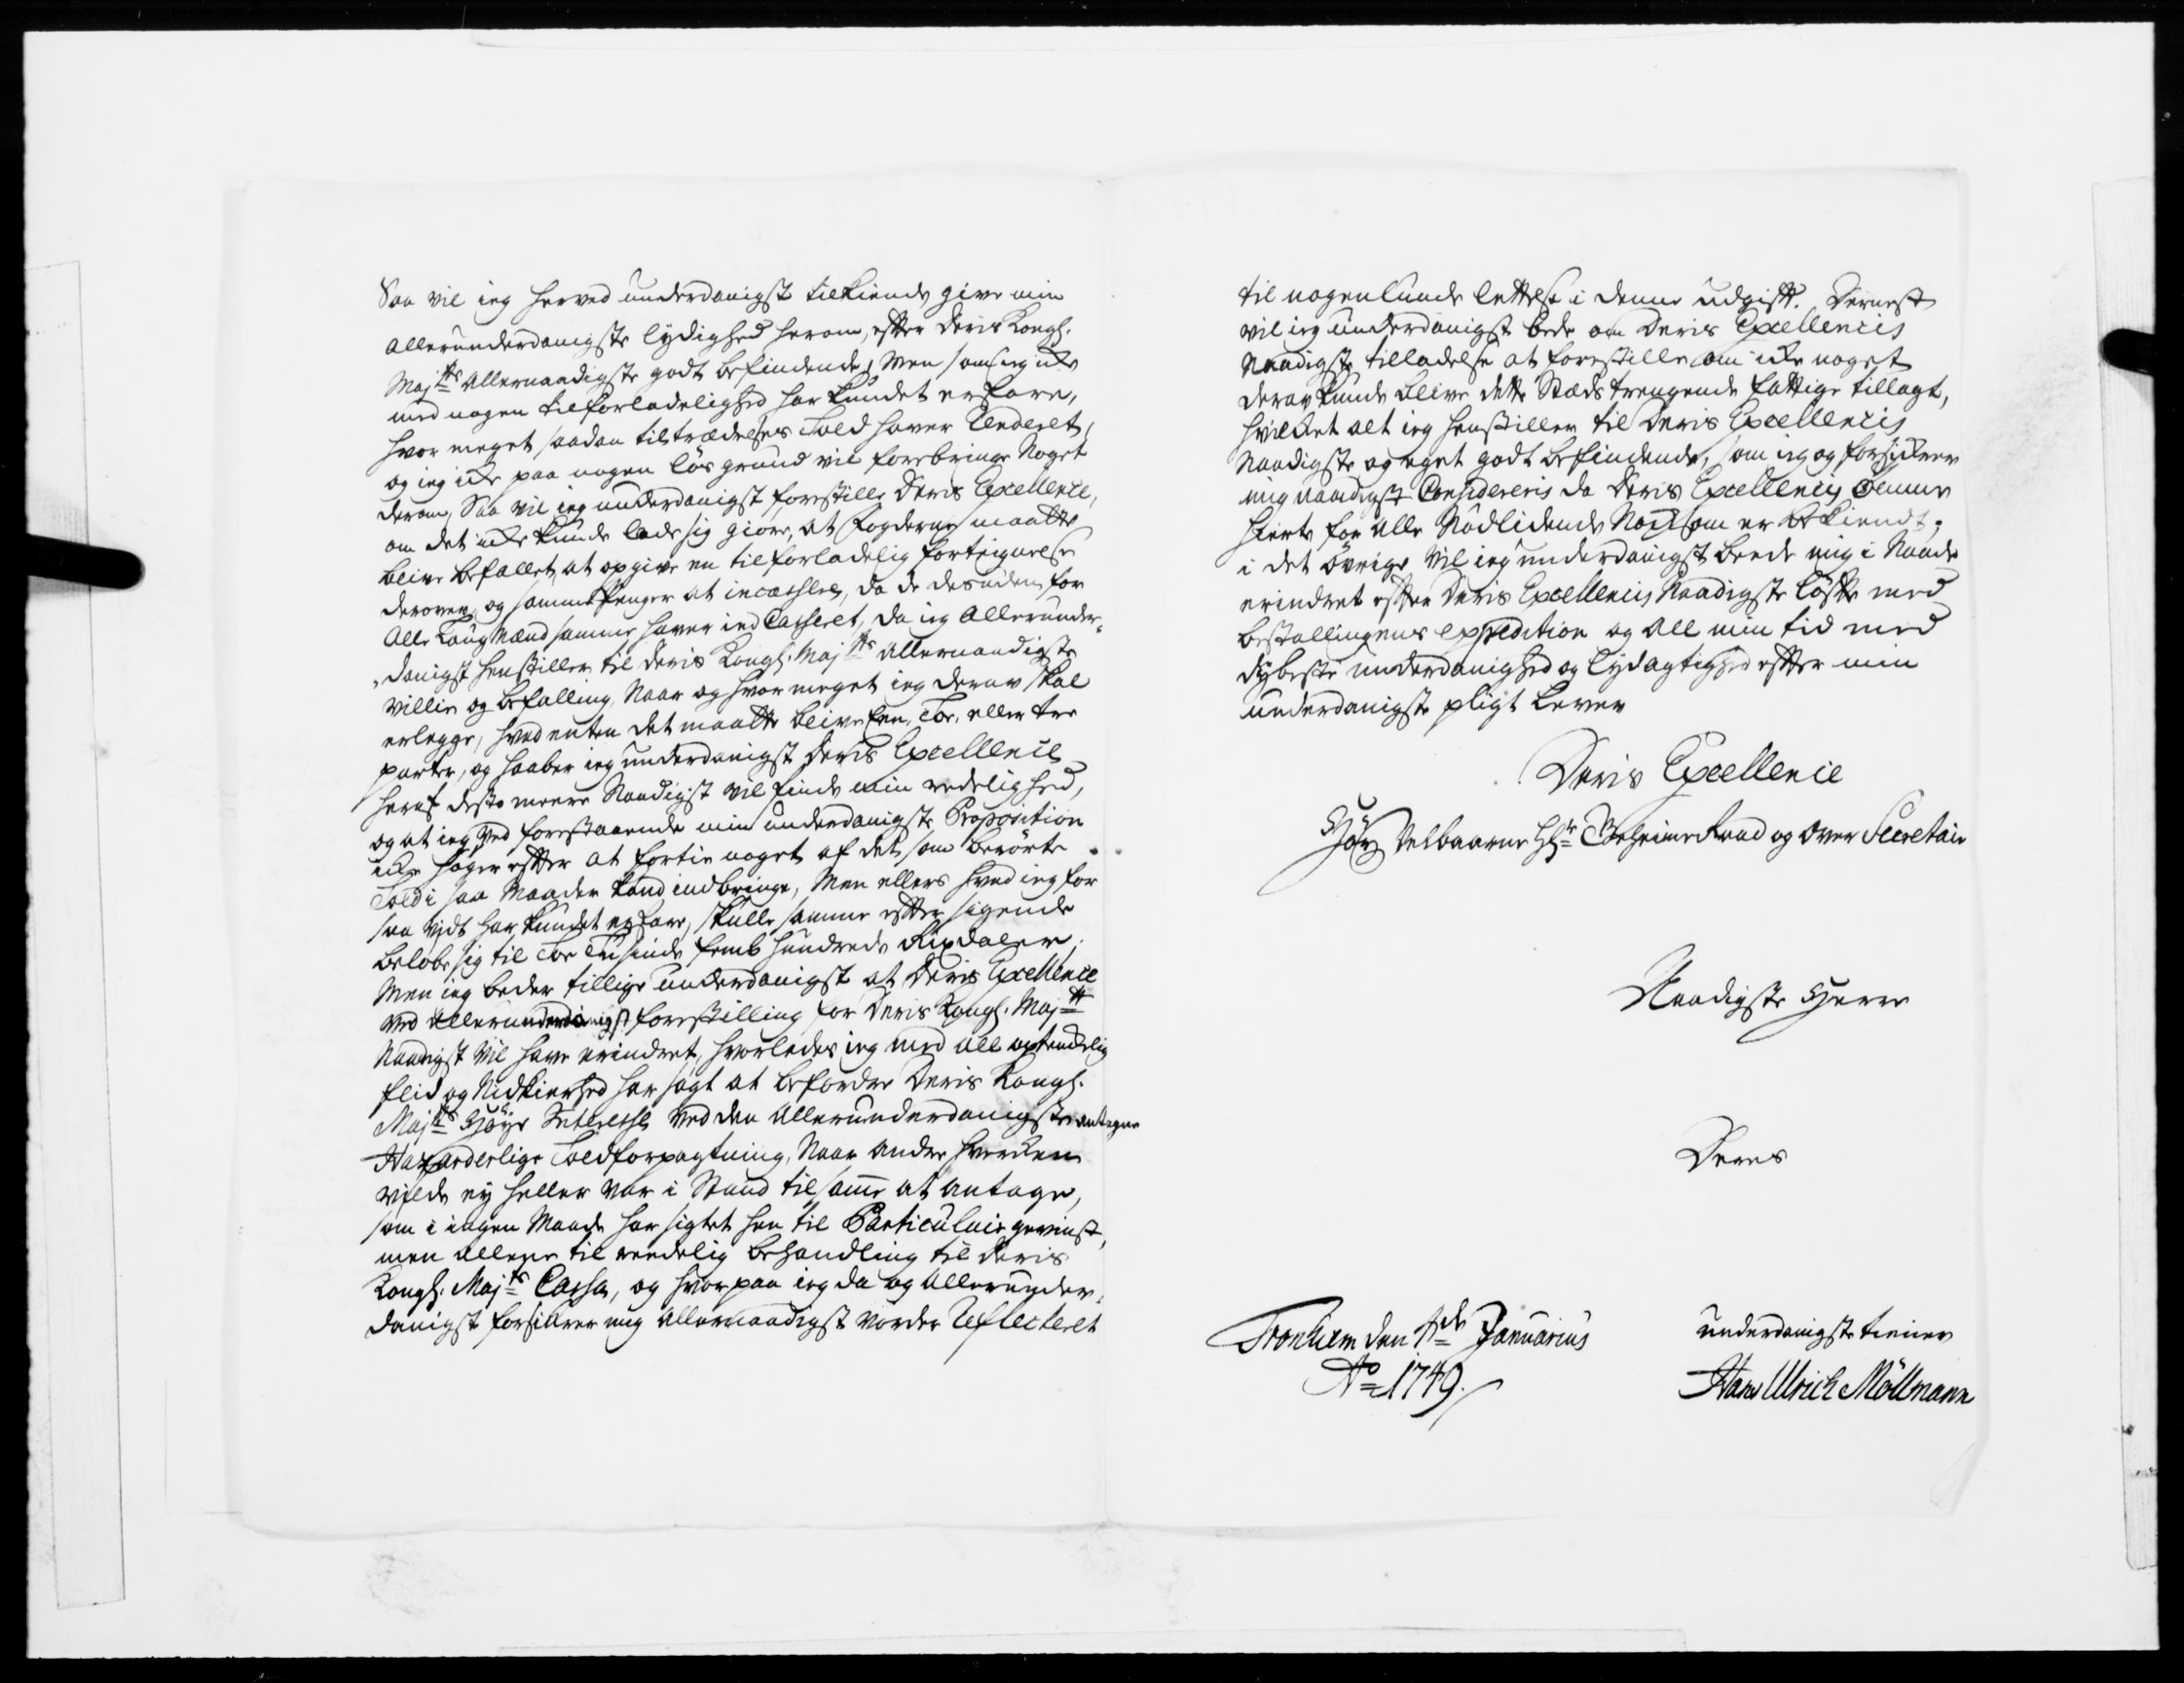 Saa vil ieg herved underdanigst tilkiende give min
allerunderdanigste lydighed herom, efter Deris Kongl.
Majts allernaadigste godt befindende, Men som ieg icke
med nogen tilforladelighed har kundet erfare,
hvor meget saadan tiltrædelses Told haver renderet,
og ieg icke paa nogen løs grund vil forebringe Noget
derom, Saa vil ieg underdanigst forestille Deris Excellence,
om det icke kunde lade sig giøre, at Fogderne maatte
blive befallet, at opgive en tilforladelig fortegnelse
derover, og samme Penger at incassere, da de desuden for
Alle Laug Mænd samme haver ind Casseret, da ieg Allerunder-
danigst henstiller til Deris Kongl. Majts allernaadigste
villie og befalling, Naar og hvor meget ieg derav skal
erlegge, hvad enten det maatte blive Een, Toe, eller tre
parter, og haaber ieg underdanigst Deris Excellence
heraf desto meere Naadigst vil finde min redelighed,
og at ieg ved forestaaende min underdanigste Proposition
icke søger efter at fortie noget af det, som berørte
Told i saa Maader kand indbringe, Men ellers hvad ieg for
saa vidt har kundet erfare, skulle samme efter sigende
beløbe sig til Toe Tusinde femb hundrede Rixdaler.
Men ieg beder tillige underdanigst at Deris Excellence
ved Allerunderdanigst forestilling for Deris Kongl. Majtt
Naadigst vil have erindret, hvorledes ieg med all optendelig
fliid og Nidkierhed har søgt at befordre Deris Kongl.
Majts Høye Interesse ved den allerunderdanigste antagne
Hazarderlige Toldforpagtning, Naar andre hverken
vilde ey heller var i Stand til samme at antage,
som i ingen Maade har sigtet hen til Particulair gevinst,
men allene til reedelig behandling til Deris
Kongl. Majts Cassa, og hvorpaa ieg da og Allerunder-
danigst forsikrer mig allernaadigst vorder Reflecteret
til nogenlunde lettelse i denne udgift. Dernest
vil ieg underdanigst bede om Deris Excellencis
Naadigste tilladelse at forestille om icke noget
derav kunde blive dette Stæds trengende fattige tillagt,
hvilcket alt ieg henstiller til Deris Excellencis
Naadigste og eget godt befindende, som ieg og forsikrer
mig naadigst Considereris da Deris Excellencis ømme
hierte for alle Nødlidende Nock som er bekiendt;
i det øvrige vil ieg underdanigst beede mig i Naade
erindret efter Deris Excellencis Naadigste løfte med
bestallingens expedition og all min tid med
dybeste underdanighed og lydagtighed efter min
underdanigste pligt lever
Deris Excellence
Høy Velbaarne Hr Geheime Raad og Over Secretair
Naadigste Herre
Deres
Tronhiem den 4de Januarius
Ao 1749.
underdanigste tiener
Hans Ulrich Möllmann